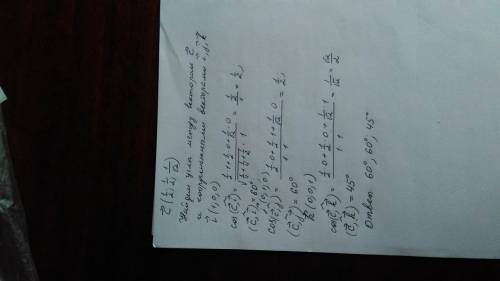 c⃗ (1/2, 1/2, 1/√2)
Найдем углы между вектором c⃗
и координатными векторами i⃗, j⃗, k⃗
i⃗ (1, 0, 0)
cos(c⃗, i⃗) = (1/2·1 + 1/2·0 + 1/√2·0) / (√(1/4+1/4+1/2) · 1) = (1/2)/1 = 1/2,
(c⃗, i⃗) = 60°
j⃗ (0, 1, 0)
cos(c⃗, j⃗) = (1/2·0 + 1/2·1 + 1/√2·0) / (1·1) = 1/2,
(c⃗, j⃗) = 60°
k⃗ (0, 0, 1)
cos(c⃗, k⃗) = (1/2·0 + 1/2·0 + 1/√2·1) / (1·1) = 1/√2 = √2/2
(c⃗, k⃗) = 45°
Ответ 60°, 60°, 45°